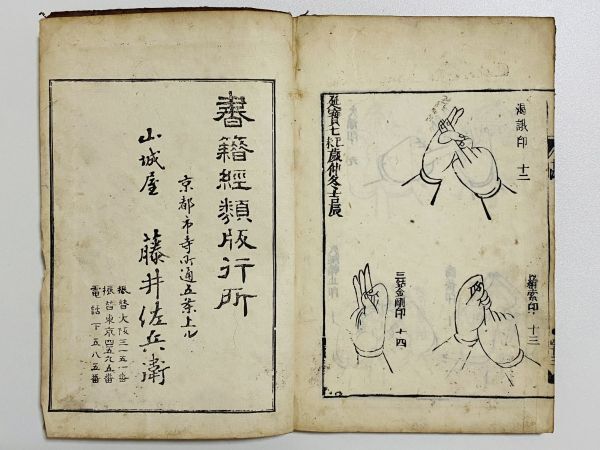 渇誐印 十二
羂索印 十三
三鈷金剛印 十四
延寶七己未歳仲冬吉辰
書籍經類版行所
京都市寺町通五条上ル
山城屋 藤井佐兵衛
振替大阪三一五一番
振替東京四五九五番
電話下五八五番